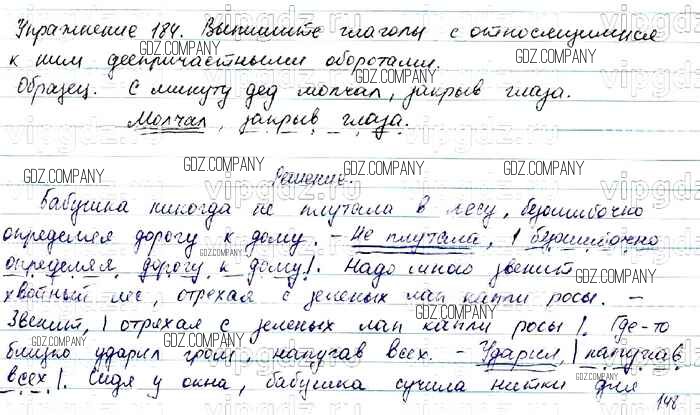 Упражнение 184. Выпишите глаголы с относящимися
к ним деепричастными оборотами.
Образец. С минуту дед молчал, закрыв глаза.
Молчал, закрыв глаза.
Решение.
Бабушка никогда не плутала в лесу, безошибочно
определяя дорогу к дому. – Не плутала, | безошибочно
определяя дорогу к дому|. Надо мною звенит
хвойный лес, отряхая с зеленых лап капли росы. –
Звенит, | отряхая с зеленых лап капли росы|. Где-то
близко ударил гром, напугав всех. – Ударил, | напугав
всех|. Сидя у окна, бабушка сучила нитки для
148
GDZ.COMPANY
vipgdz.ru